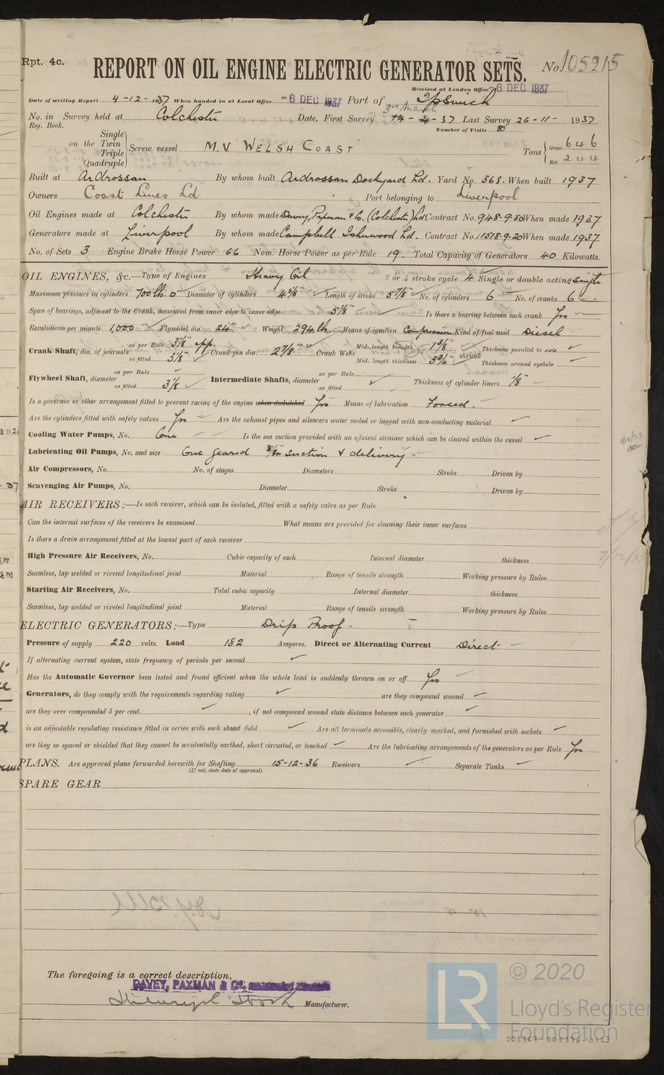 Rpt. 4c.
REPORT ON OIL ENGINE ELECTRIC GENERATOR SETS.
No. 105215
Received at London Office 6 DEC 1937
Date of writing Report 4-12-1937 When handed in at Local Office -6 DEC 1937 Port of Ipswich
No. in Survey held at Colchester Date, First Survey 14-4-37 Last Survey 26-11-1937
Reg. Book. Number of Visits
Single
on the Twin
Triple
Quadruple
Screw vessel M.V WELSH COAST
Tons Gross 646
Net
Built at Ardrossan By whom built Ardrossan Dockyard Ld. Yard No. 368. When built 1937
Owners Coast Lines Ld Port belonging to Liverpool
Oil Engines made at Colchester By whom made Davey, Paxman & Co. (Colchester) Ld Contract No. 948-9-80 When made 1937
Generators made at Liverpool By whom made Campbell Isherwood Ld. Contract No. 11518-9-20 When made 1937.
No. of Sets 3 Engine Brake Horse Power 66 Nom. Horse Power as per Rule 19. Total Capacity of Generators 40 Kilowatts.
OIL ENGINES, &c.—Type of Engines Heavy Oil 2 or 4 stroke cycle 4 Single or double acting Single
Maximum pressure in cylinders 700 lb. Diameter of cylinders Length of stroke No. of cylinders 6 No. of cranks 6
Span of bearings, adjacent to the Crank, measured from inner edge to inner edge Is there a bearing between each crank Yes
Revolutions per minute 1,000 Flywheel dia. 24" Weight 394 lb Means of ignition Compression Kind of fuel used Diesel
Crank Shaft, dia. of journals as per Rule 3 1/8 app.
as fitted 3 1/8
Crank pin dia. 2 7/8" Crank Webs Mid. length breadth shrunk Thickness parallel to axis
Mid. length thickness Thickness around eyehole
Flywheel Shaft, diameter as per Rule
as fitted 3 1/8
Intermediate Shafts, diameter as per Rule
as fitted
Thickness of cylinder liners
Is a governor or other arrangement fitted to prevent racing of the engine when declutched Yes Means of lubrication Forced.
Are the cylinders fitted with safety valves Yes Are the exhaust pipes and silencers water cooled or lagged with non-conducting material
Cooling Water Pumps, No. One Is the sea suction provided with an efficient strainer which can be cleared within the vessel
Lubricating Oil Pumps, No. and size One geared suction & delivery.
Air Compressors, No. No. of stages Diameters Stroke Driven by
Scavenging Air Pumps, No. Diameter Stroke Driven by
AIR RECEIVERS:—Is each receiver, which can be isolated, fitted with a safety valve as per Rule
Can the internal surfaces of the receivers be examined What means are provided for cleaning their inner surfaces
Is there a drain arrangement fitted at the lowest part of each receiver
High Pressure Air Receivers, No. Cubic capacity of each Internal diameter thickness
Seamless, lap welded or riveted longitudinal joint Material Range of tensile strength Working pressure by Rules
Starting Air Receivers, No. Total cubic capacity Internal diameter thickness
Seamless, lap welded or riveted longitudinal joint Material Range of tensile strength Working pressure by Rules
ELECTRIC GENERATORS:—Type Drip Proof.
Pressure of supply 220 volts. Load 182 Amperes. Direct or Alternating Current Direct
If alternating current system, state frequency of periods per second
Has the Automatic Governor been tested and found efficient when the whole load is suddenly thrown on or off Yes
Generators, do they comply with the requirements regarding rating are they compound wound
are they over compounded 5 per cent. , if not compound wound state distance between each generator
is an adjustable regulating resistance fitted in series with each shunt field Are all terminals accessible, clearly marked, and furnished with sockets
are they so spaced or shielded that they cannot be accidentally earthed, short circuited, or touched Are the lubricating arrangements of the generators as per Rule Yes
PLANS. Are approved plans forwarded herewith for Shafting 15-12-36 Receivers Separate Tanks
(If not, state date of approval)
SPARE GEAR
The foregoing is a correct description,
DAVEY, PAXMAN & Co.
Manufacturer.
LR
© 2020
Lloyd's Register
Foundation